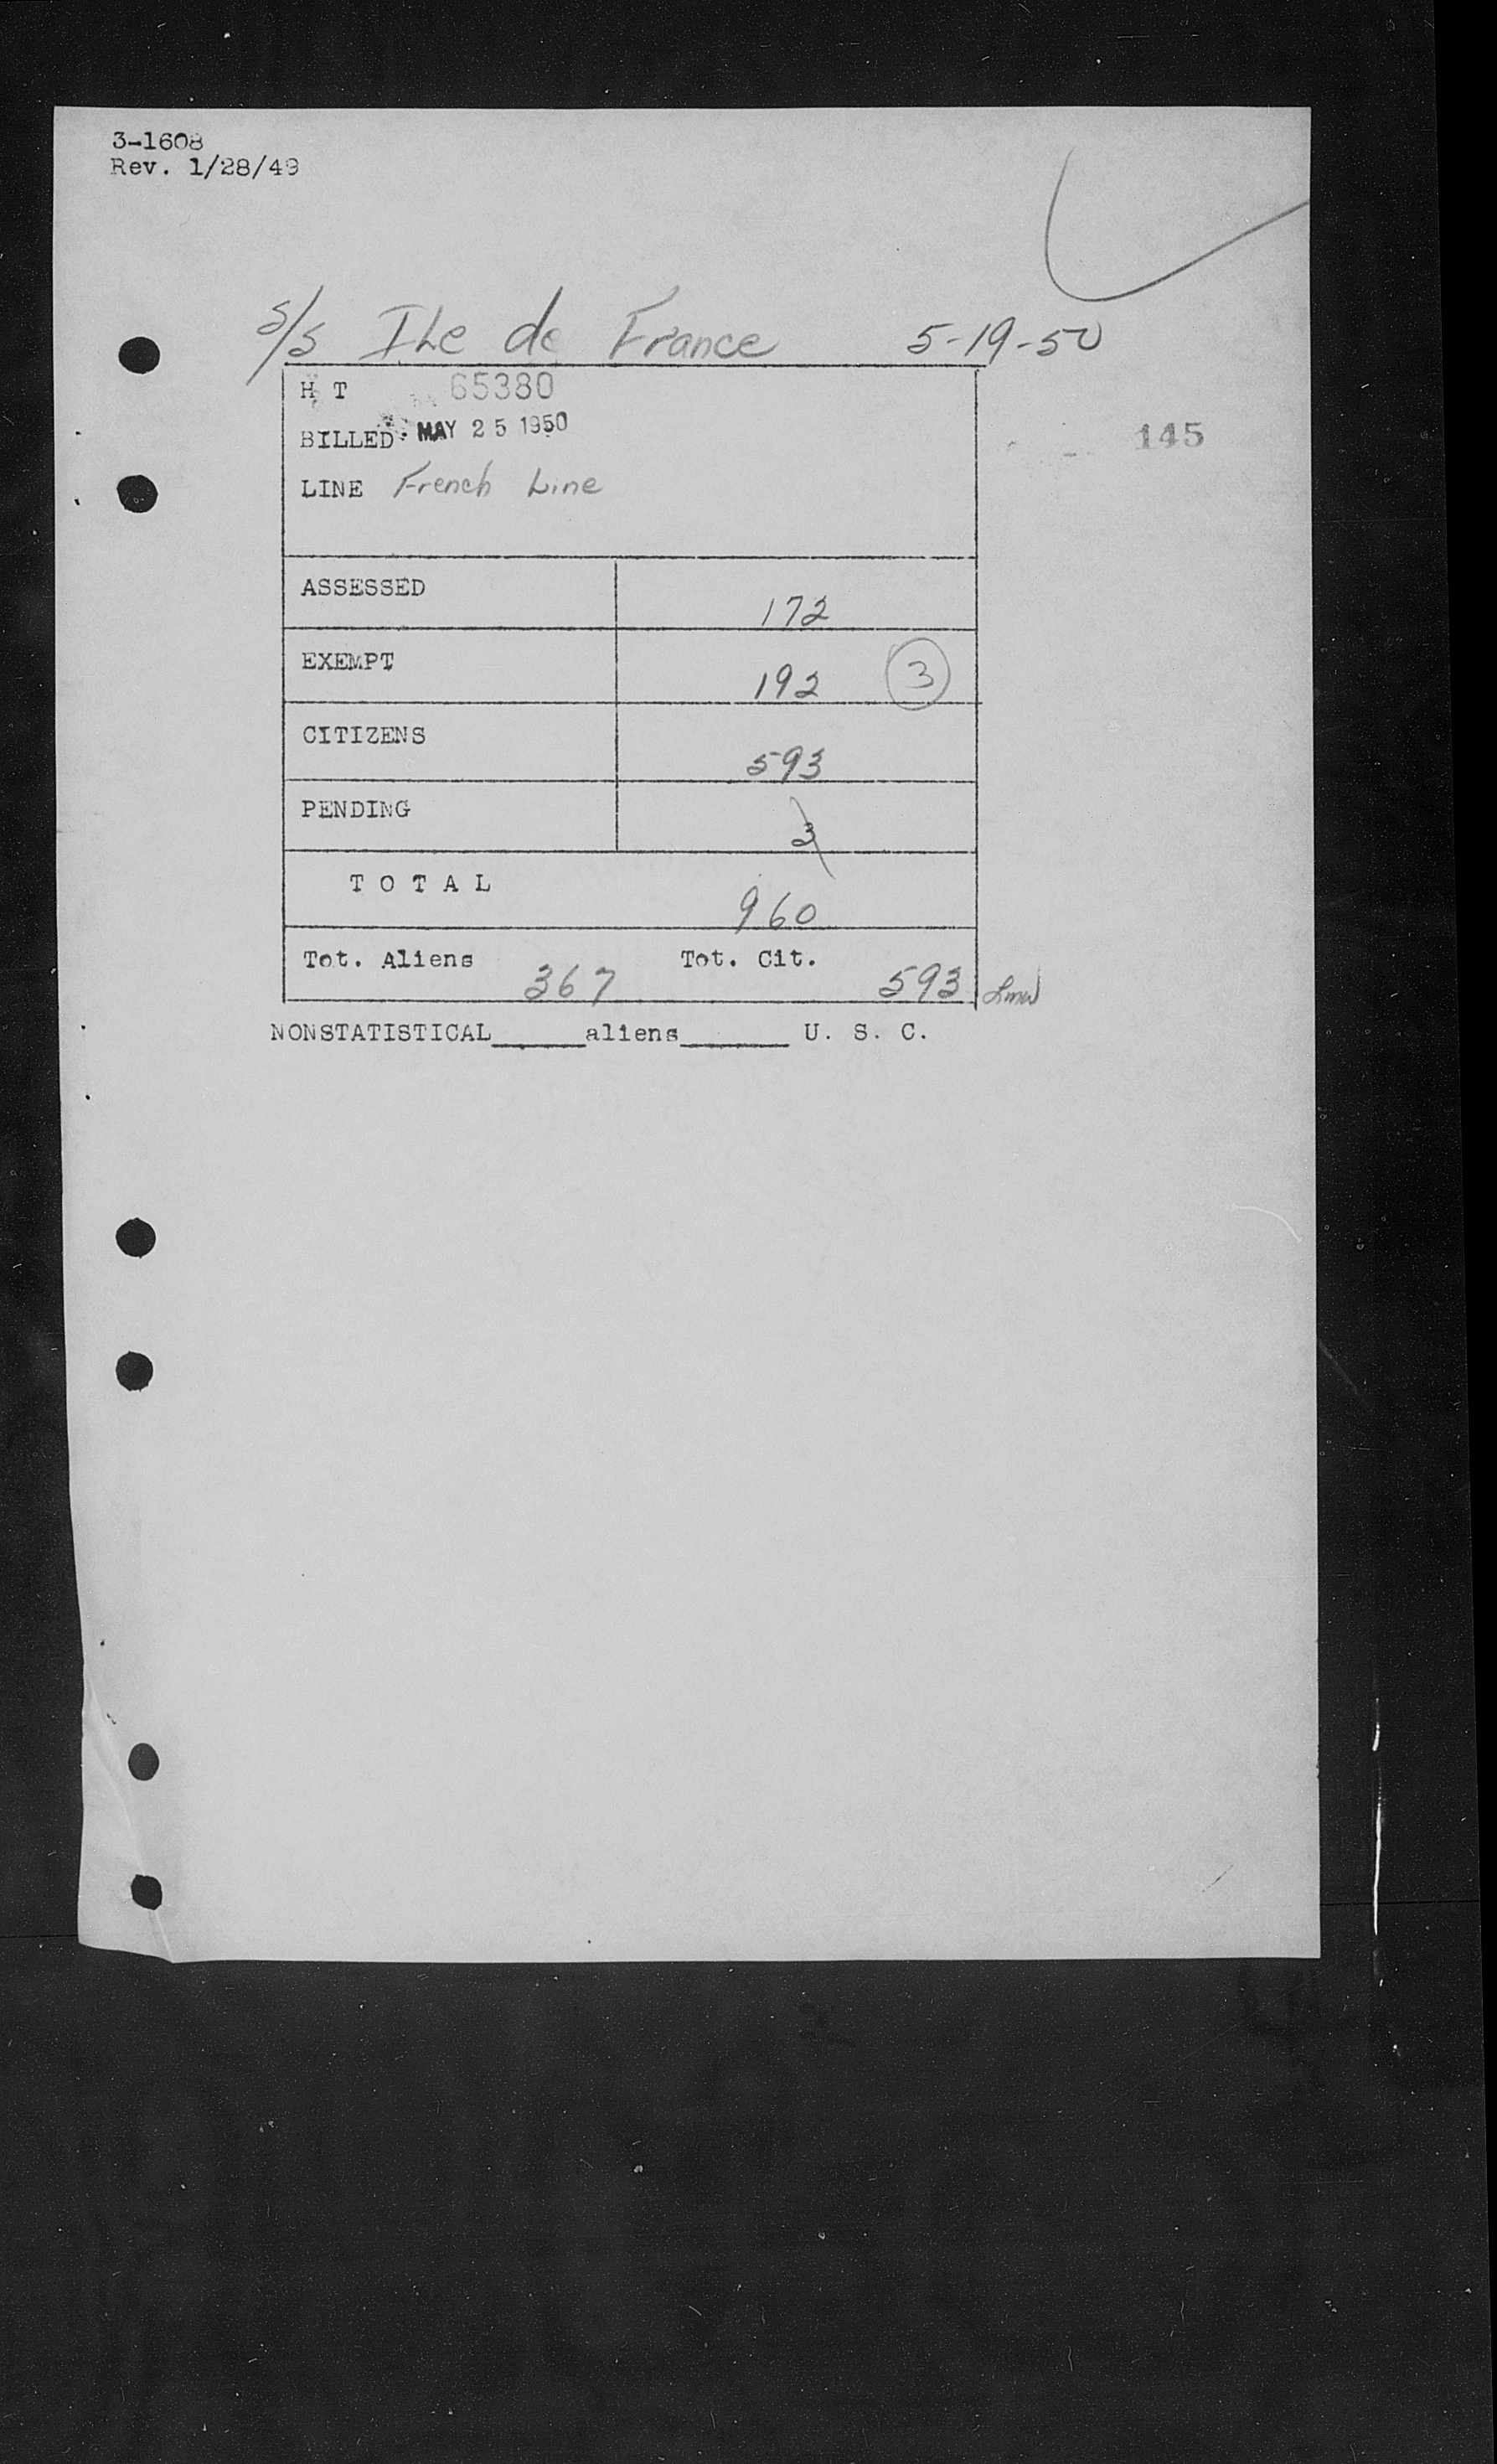 3-1608
Rev. 1/28/49
S/S Ile de France 5-19-50
H T 65380
BILLED MAY 25 1950
145
LINE French Line
ASSESSED 172
EXEMPT 192 3
CITIZENS 593
PENDING 3
T O T A L 960
Tot. Aliens 367 Tot. Cit. 593
NONSTATISTICAL_____aliens______ U. S. C.